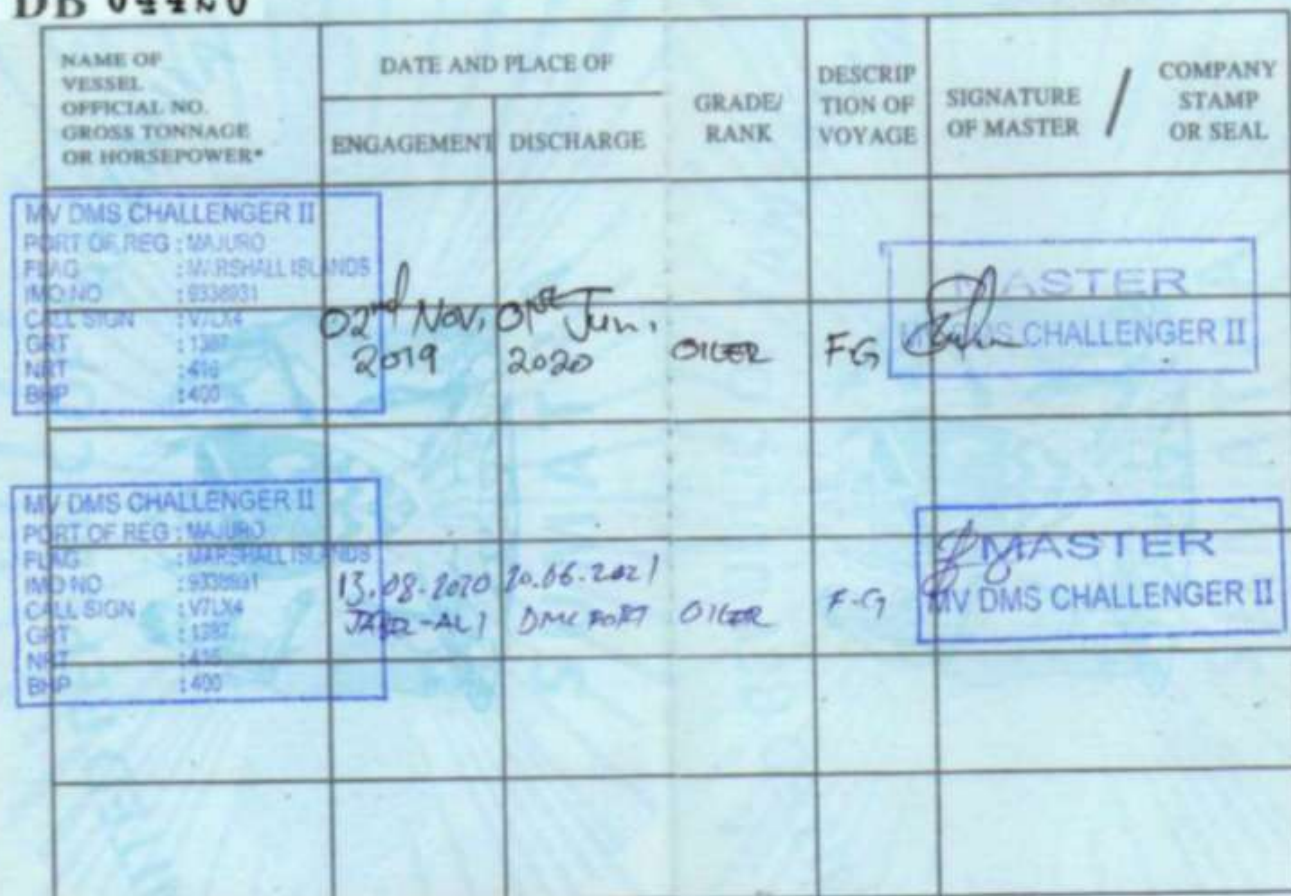 DB
NAME OF
VESSEL
OFFICIAL NO.
GROSS TONNAGE
OR HORSEPOWER*
DATE AND PLACE OF
ENGAGEMENT
DISCHARGE
GRADE/
RANK
DESCRIP
TION OF
VOYAGE
SIGNATURE
OF MASTER
/
COMPANY
STAMP
OR SEAL
MV DMS CHALLENGER II
PORT OF REG : MAJURO
FLAG : MARSHALL ISLANDS
IMO NO
CALL SIGN : V7LX4
GRT : 1387
NRT : 416
BHP : 400
02nd Nov,
2019
01st Jun.
2020
OILER
FG
MASTER
CHALLENGER II
MV DMS CHALLENGER II
PORT OF REG : MAJURO
FLAG : MARSHALL ISLANDS
IMO NO
CALL SIGN : V7LX4
GRT : 1387
NRT : 416
BHP : 400
13.08.2020
JABEL-ALI
20.06.2021
DMC PORT
OILER
F-G
MASTER
MV DMS CHALLENGER II